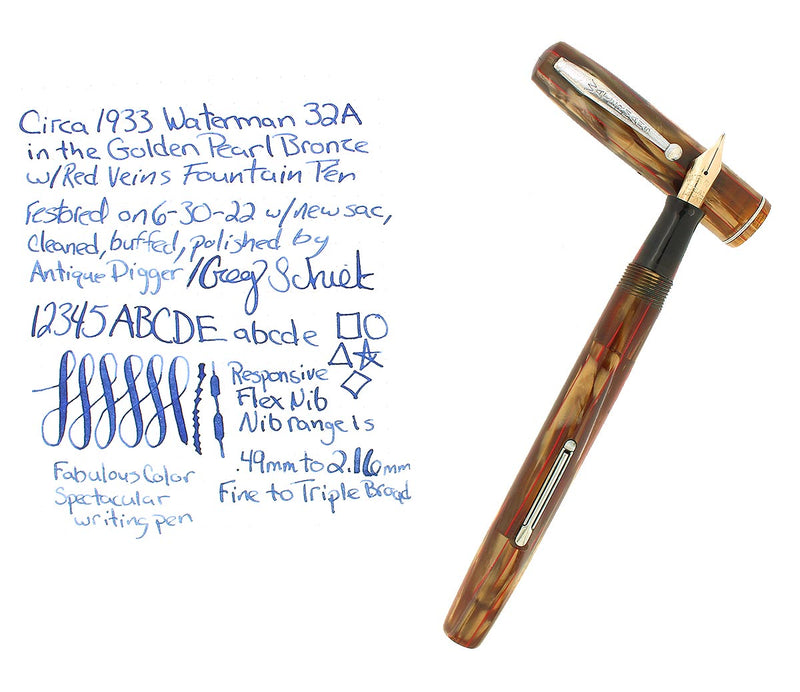 Circa 1933 Waterman 32A
in the Golden Pearl Bronze
w/Red Veins Fountain Pen
restored on 6-30-22 w/new sac,
cleaned, buffed, polished by
Antique Digger /Greg
12345 ABCDE abcde
Responsive
Flex Nib
Nib range is
.49mm to 2.16mm
Fine to Triple Broad
Fabulous Color
Spectacular
writing pen